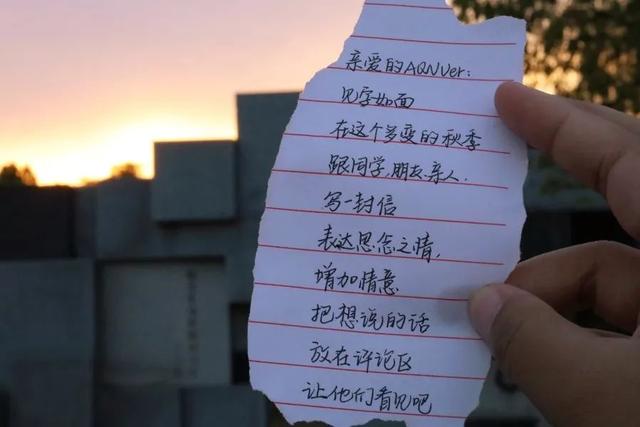 亲爱的AQNVer:
见字如面
在这个多变的秋季
跟同学,朋友,亲人.
写一封信
表达思念之情,
增加情意
把想说的话
放在评论区
让他们看见吧